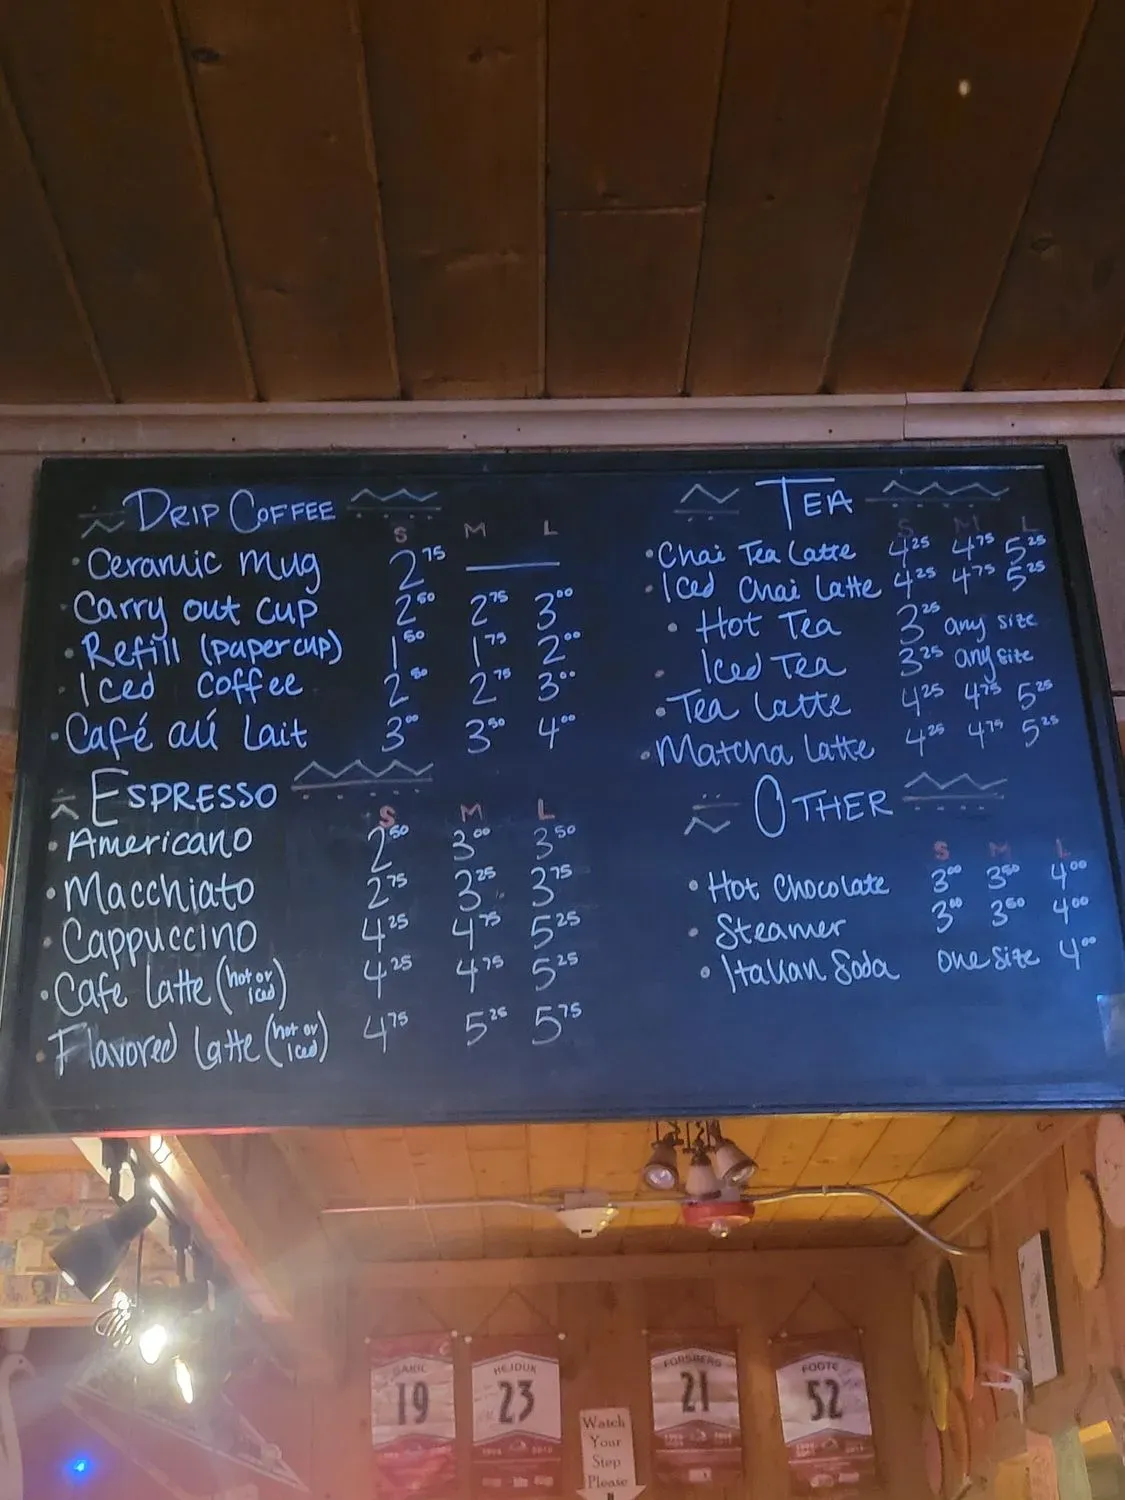 DRIP COFFEE
S M L
• Ceramic mug 2.75 ——
• Carry out cup 2.50 2.75 3.00
• Refill (paper cup) 1.50 1.75 2.00
• Iced coffee 2.50 2.75 3.00
• Café aú lait 3.00 3.50 4.00
ESPRESSO
S M L
• Americano 2.50 3.00 3.50
• Macchiato 2.75 3.25 3.75
• Cappuccino 4.25 4.75 5.25
• Cafe latte (hot or iced) 4.25 4.75 5.25
• Flavored latte (hot or iced) 4.75 5.25 5.75
TEA
S M L
• Chai Tea Latte 4.25 4.75 5.25
• Iced Chai Latte 4.25 4.75 5.25
• Hot Tea 3.25 any size
• Iced Tea 3.25 any size
• Tea latte 4.25 4.75 5.25
• Matcha latte 4.25 4.75 5.25
OTHER
S M L
• Hot Chocolate 3.00 3.50 4.00
• Steamer 3.00 3.50 4.00
• Italian Soda one size 4.00
SAKIC
19
HEJDUK
23
FORSBERG
21
FOOTE
52
Watch
Your
Step
Please